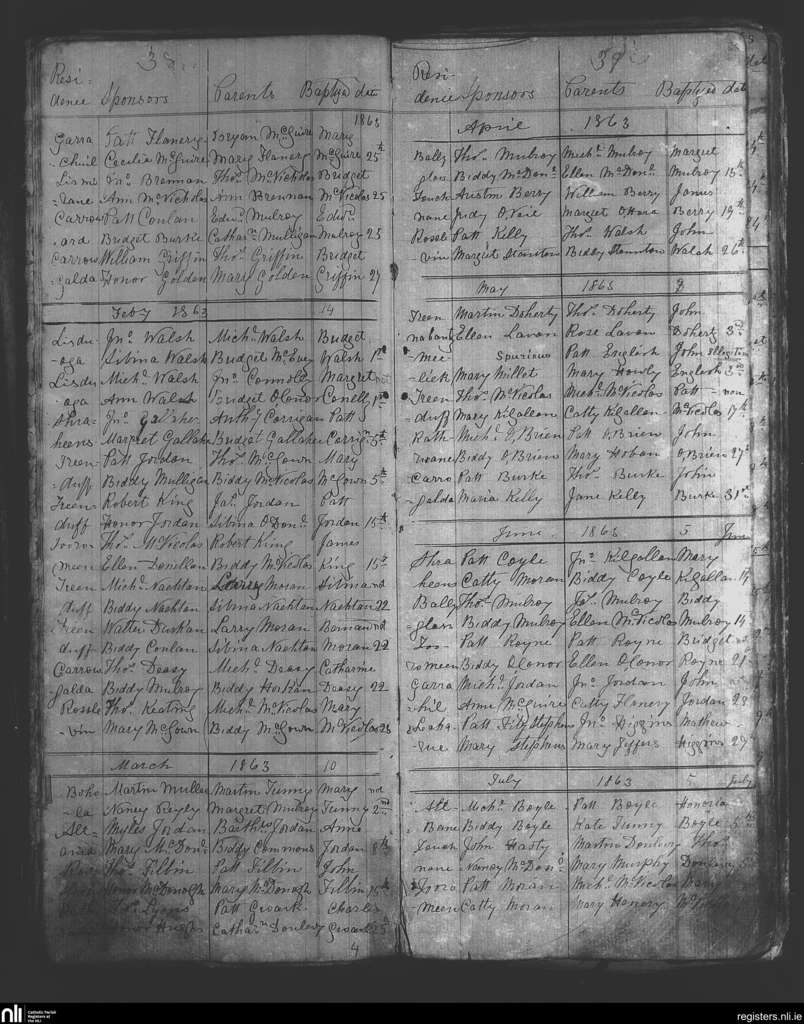 38
Resi-
dence Sponsors Parents Baptized dat
1863
Garra Patt Flanery Bryan McGuire Mary
-chuil Cecilia McGuire Mary Flanery McGuire 25th
Lismi Jno. Brennan Thos. McNicholas Bridget
-rane Ann McNicholas Ann Brennan McNicolas 25
Carrow Patt Conlan Edwd. Mulroy Edwd.
-ard Bridget Burke Cathar. Mulligan Mulroy 25
Carrow William Griffin Thos. Griffin Bridget
galda Honor Golden Mary Golden Griffin 27
Feby 1863 14
Lisdu- Jno. Walsh Michl. Walsh Budget
-oga Sibina Walsh Budget McEvey Walsh 1st
Lisdu Michl. Walsh Jno. Connolly Margret
-oga Ann Walsh Bridget OConor Conelly 1st
Shra- Jno. Anthy Corrigan Patt
heens Margret Gallaher Budget Gallaher Corrign 5th
Treen- Patt Jordan Thos. McGown Mary
-duff Biddy Mulligan Biddy McNicolas McGown 5th
Treen Robert King Jas. Jordan Patt
duff Honor Jordan Sibina O'Dond. Jordan 15th
Thos. McNicolas Robert King James
meen Ellen Donillon Biddy McNicolas King 15th
Treen Michl. Naehtan Larry Moran Sibina
duff Biddy Naehtan Sibina Naehtan Naehtan 22
Treen Walter Durkan Larry Moran
duff Biddy Conlan Sibina Naehtan Moran 22
Carrow Thos. Deasy Michl. Deasy Catharine
galda Biddy Mulroy Biddy Horkan Deasy 22
Rossle Thos. Keating Michl. McNicolas Mary
-vin Mary McGown Biddy McGown McNicolas 23
March 1863 10
Boho- Martin Mullen Martin Tunny Mary
-la Nancy Bagley Margret Mulroy Tunny 2nd
Att- Myles Jordan Barthw Jordan Anne
Mary McDond. Biddy Commons Jordan 8th
Thos. Filbin Patt Filbin John
Honor McDonogh Mary McDonagh Filbin 15th
Thos. Lyons Patt Charles
Hughes Catharn Donlevy 25th
4
39
Resi-
dence Sponsors Parents Baptyzed dat
April 1863
Bally Thos. Mulroy Michl. Mulroy Margret
glass Biddy McDond. Ellen McDond. Mulroy 15th
Austin Berry William Berry James
nane Judy Margret O'Hara Berry 19th
Rossle Patt Kelly Thos. Walsh John
-vin Margret Staunton Biddy Staunton Walsh 26th
May 1863 8
Treen Martin Doherty Thos. Doherty John
nabanty Ellen Lavan Rose Lavan Doherty 3rd
-mee Spurious Patt English John
-lick Mary Millet Mary Howly English 3rd
Treen Thos. McNicolas Michl. McNicolas Patt
duff Mary Kilgallon Catty Kilgallon McNicolas 17th
Rath- Michl. O'Brien Patt O'Brien John
roane Biddy O'Brien Mary Hoban O'Brien 27th
Carro Patt Burke Thos. Burke John
galda Maria Kelly Jane Kelly Burke 31st
June 1863 5 June
Shra Patt Coyle Jno. Kilgallon Mary
heens Catty Moran Biddy Coyle Kilgallon
Bally Thos. Mulroy Js. Mulroy Biddy
glass Biddy Mulroy Ellen McNicolas Mulroy 14
Patt Royne Patt Royne Bridget
romeen Biddy OConor Ellen OConor Royne 21
Garra Michl. Jordan Jno. Jordan John
-hil Anne McGuire Catty Flanery Jordan 28
Patt FitzStephens Jno. Higgins Mathew
-rue Mary Stephens Mary Jeffers Higgins 29
July 1863 5 July
Att- Michl. Boyle Patt Boyle Honoria
Bane Biddy Boyle Kate Tunny Boyle 5th
John Hasty Martin Donlevy Thos.
nane Nancy McDond. Mary Murphy Donlevy 5
Patt Moran Michl. McNicolas Mary
-meen Catty Moran Mary Henery
nli
Catholic Parish
Registers at
the NLI
registers.nli.ie